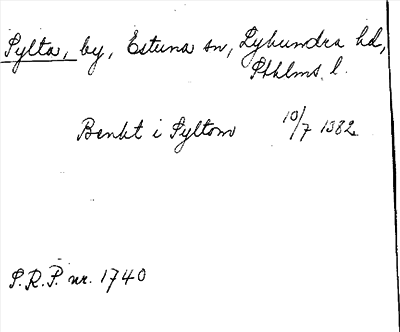 Sylta, by, Estuna sn, Lyhundra hd,
Sthlms. l.
Benkt i Syltom 10/7 1382
S.R.P. nr. 1740